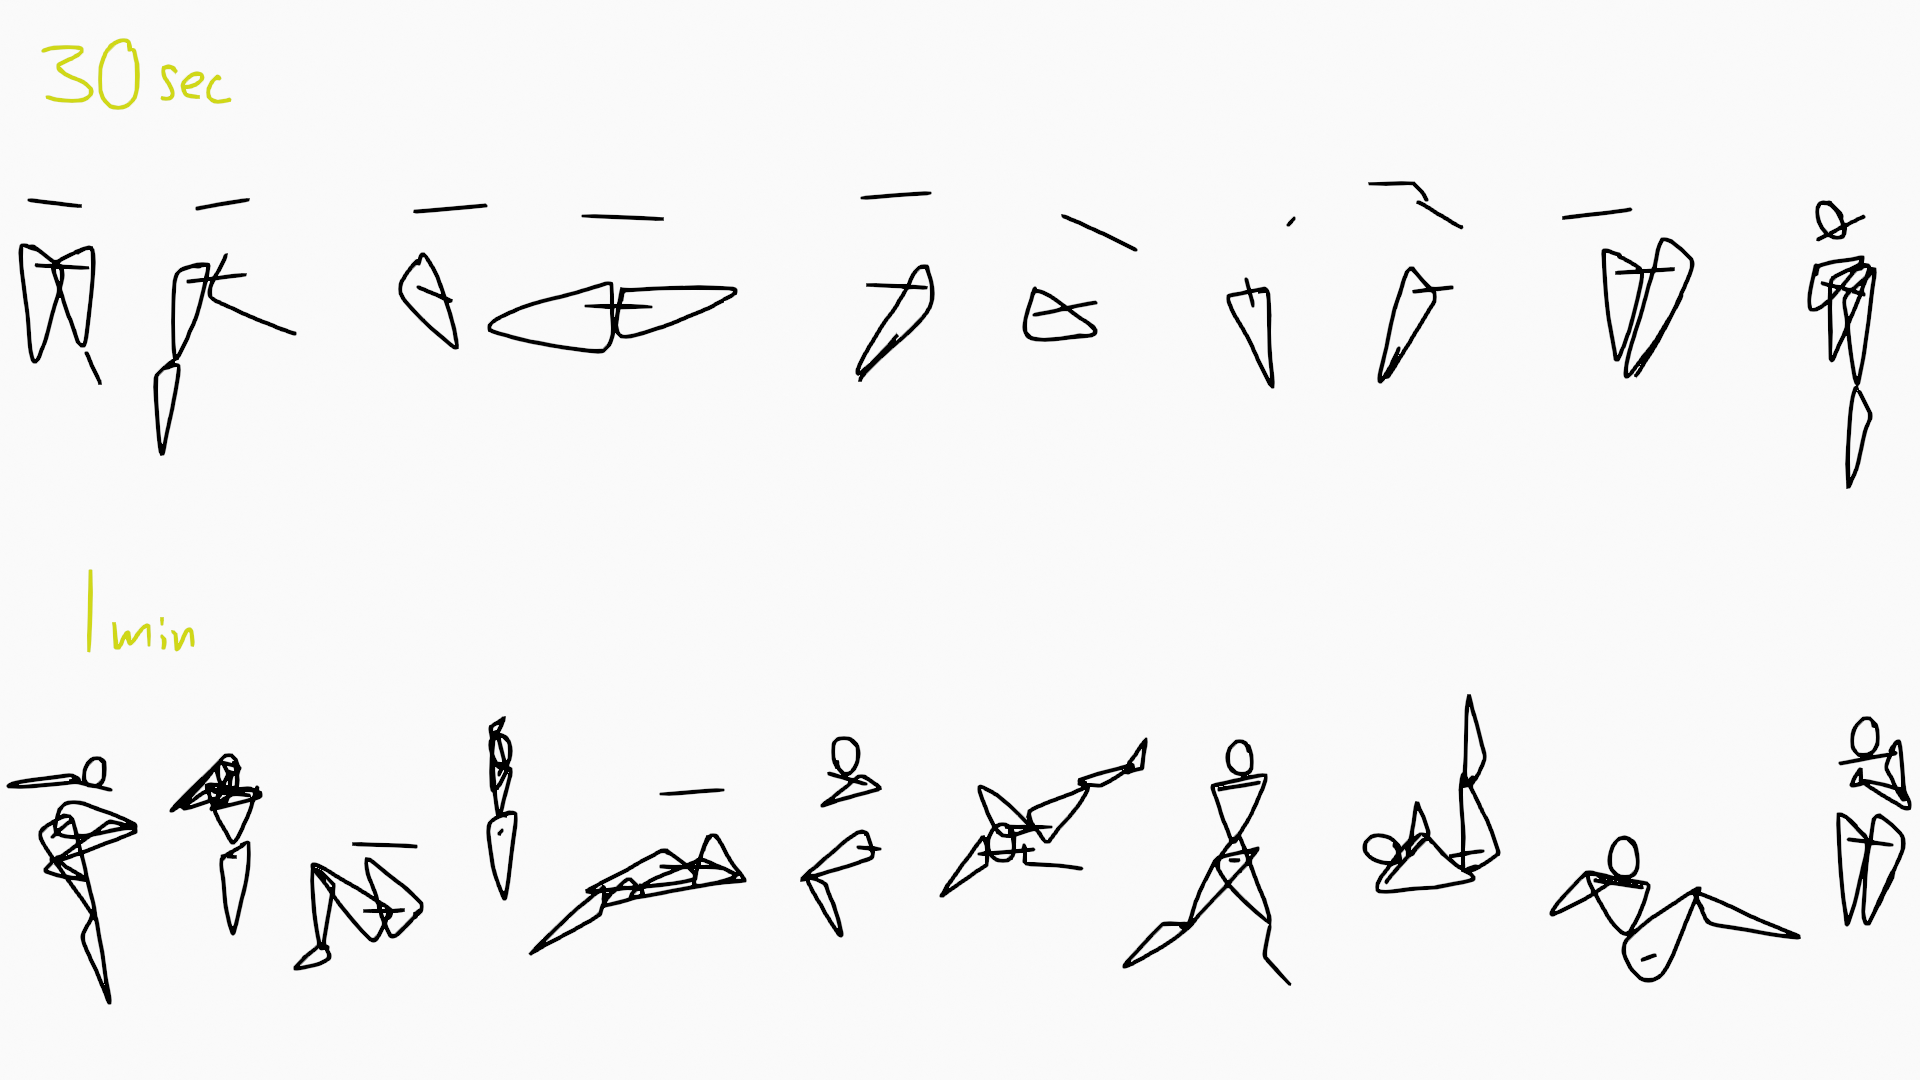 30 sec
1 min